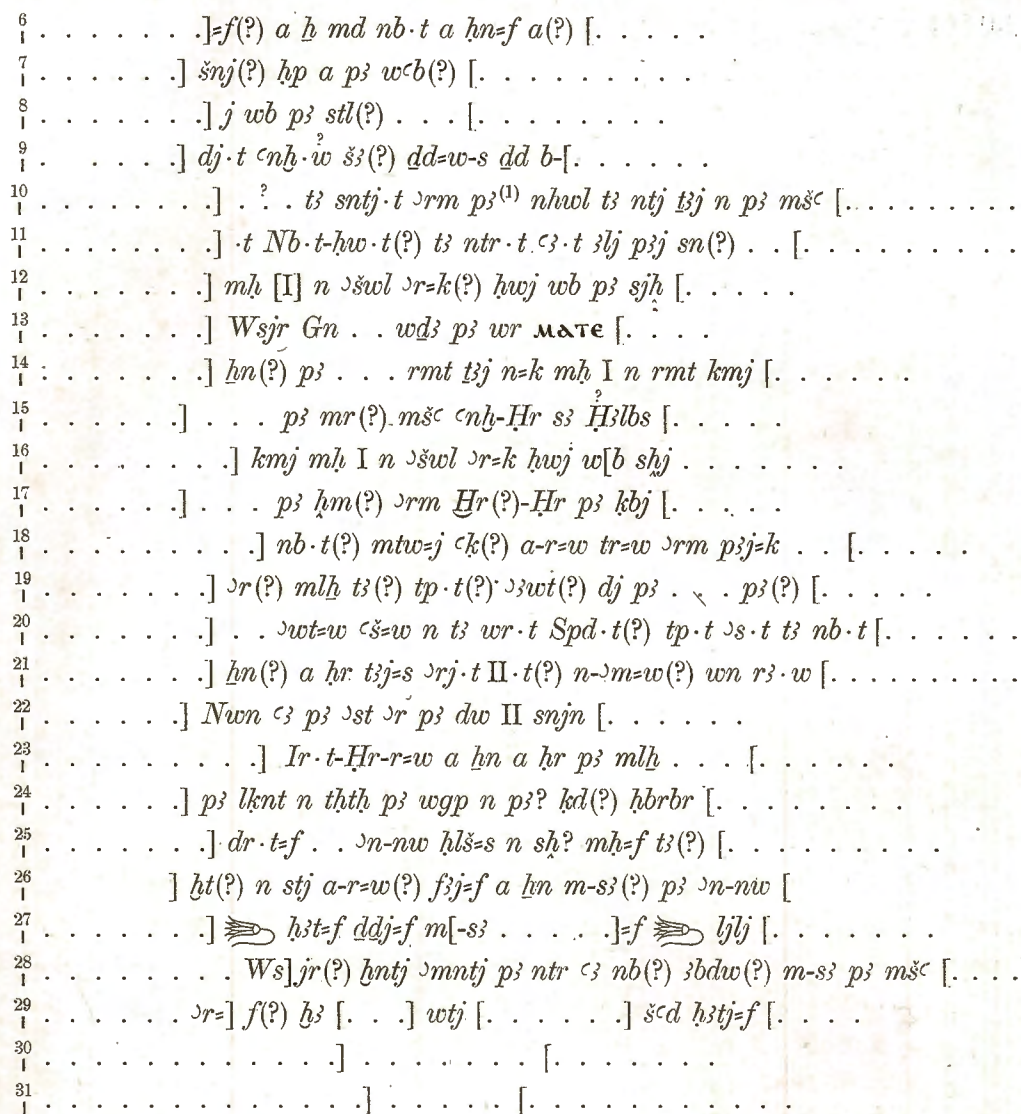 6 . . . . . . . .]⸗f(?) a ẖ md nb·t a ḥn⸗f a(?) [. . . . .
7 . . . . . . .] šnj(?) ḥp a pꜣ wꜥb(?) [. . . . . . . . .
8 . . . . . . .] j wb pꜣ stl(?) . . . [. . . . . . . .
9 . . . . . .] dj·t ꜥnḫ·w̉ šꜣ(?) ḏd⸗w-s ḏd b-[. . . . . .
10 . . . . . . . . .] . ? . tꜣ sntj·t ꜣrm pꜣ(1) nhwl tꜣ ntj ṯꜣj n pꜣ mšꜥ [. . . . . . . . .
11 . . . . . . . .] ·t Nb·t-ḥw·t(?) tꜣ ntr·t ꜥꜣ·t ꜣlj pꜣj sn(?) . . [. . . . . . . . .
12 . . . . . . .] mḥ [I] n ꜣšwl ꜣr⸗k(?) ḥwj wb pꜣ sjḫ [. . . . .
13 . . . . . . .] Wsjr Gn . . wḏꜣ pꜣ wr ⲙⲁⲧⲉ [. . . .
14 . . . . . . . .] ẖn(?) pꜣ . . . rmt ṯꜣj n⸗k mḥ I n rmt kmj [. . . . . .
15 . . . . . .] . . . pꜣ mr(?) mšꜥ ꜥnḫ-Ḥr sꜣ Ḥꜣlbs [. . . . .
16 . . . . . . . .] kmj mḥ I n ꜣšwl ꜣr⸗k ḥwj w[b sḫj . . . . . . .
17 . . . . . .] . . . pꜣ ḫm(?) ꜣrm Ḫr(?)-Ḥr pꜣ ḳbj [. . . . .
18 . . . . . . . . . .] nb·t(?) mtw⸗j ꜥḳ(?) a-r⸗w tr⸗w ꜣrm pꜣj⸗k . . [. . . . .
19 . . . . . . . .] ꜣr(?) mlẖ tꜣ(?) tp·t(?) ꜣꜣwt(?) dj pꜣ . . . pꜣ(?) [. . . . .
20 . . . . . . . .] . . ꜣwt⸗w ꜥš⸗w n tꜣ wr·t Spd·t(?) tp·t ꜣs·t tꜣ nb·t [. . . . . .
21 . . . . . . . .] ẖn(?) a ḥr tꜣj⸗s ꜣrj·t II·t(?) n-ꜣm⸗w(?) wn rꜣ·w [. . . . . . . . . .
22 . . . . . . .] Nwn ꜥꜣ pꜣ ꜣst ꜣr pꜣ dw II snjn [. . . . . .
23 . . . . . . . . . .] Ir·t-Ḥr-r⸗w a ẖn a ḥr pꜣ mlẖ . . . [. . . . . .
24 . . . . . . .] pꜣ lḳnt n thth pꜣ wgp n pꜣ? ḳd(?) ḥbrbr [. . . . . . . .
25 . . . . . . . .] dr·t⸗f . . ꜣn-nw ḥlš⸗s n sḫ? mḥ⸗f tꜣ(?) [. . . . . . . . .
26 ] ḫt(?) n stj a-r⸗w(?) fꜣj⸗f a ẖn m-sꜣ(?) pꜣ ꜣn-nw [
27 . . . . . . . .] ḥꜣt⸗f ḏdj⸗f m[-sꜣ . . . . . .]⸗f ljlj [. . . . . . .
28 . . . . . . . . . Ws]jr(?) ḫntj ꜣmntj pꜣ ntr ꜥꜣ nb(?) ꜣbdw(?) m-sꜣ pꜣ mšꜥ [. . . .
29 . . . . . . . . ꜣr⸗] f(?) ẖꜣ [. . .] wtj [. . . . . . .] šꜥd ḥꜣtj⸗f [. . . .
30 . . . . . . . . . . . . . .] . . . . . . . . [. . . . . . .
31 . . . . . . . . . . . . . . .] . . . . . [. . . . . . . . . .